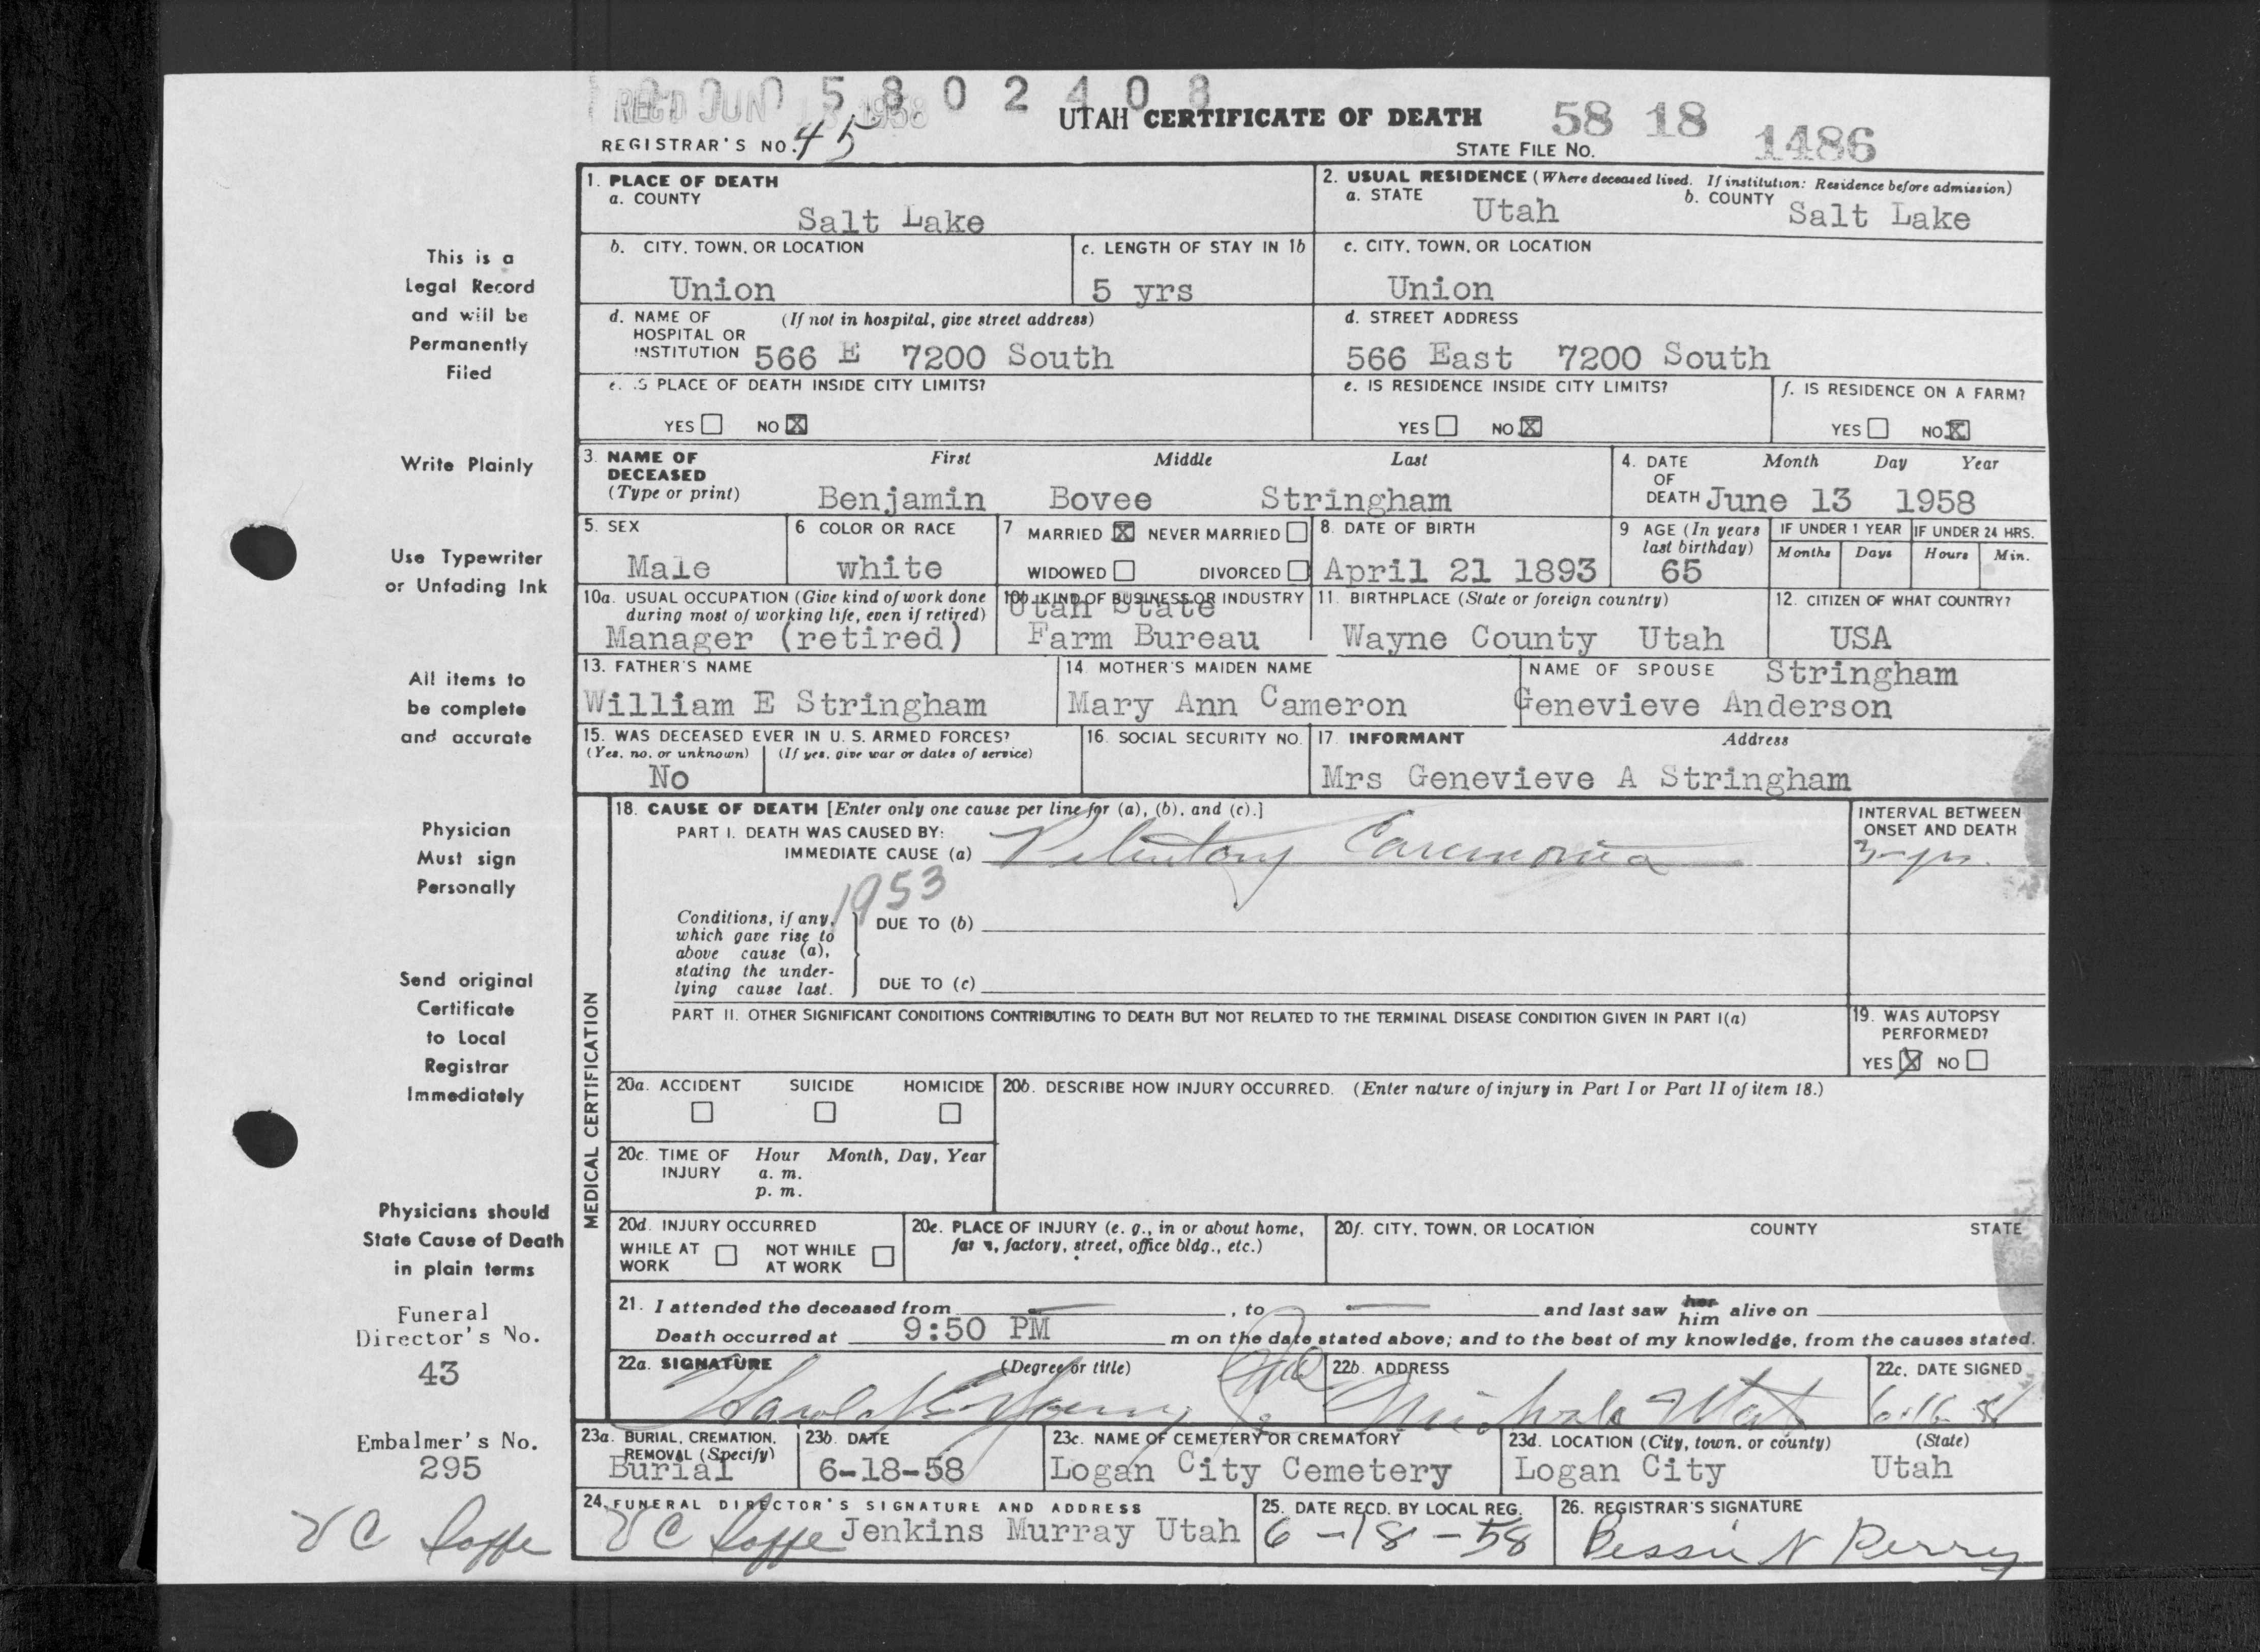 0005802408
REC'D JUN 1958
UTAH CERTIFICATE OF DEATH
58 18 1486
REGISTRAR'S NO. 45
STATE FILE NO.
1. PLACE OF DEATH
a. COUNTY
Salt Lake
2. USUAL RESIDENCE (Where deceased lived. If institution: Residence before admission)
a. STATE Utah b. COUNTY Salt Lake
b. CITY, TOWN, OR LOCATION
Union
c. LENGTH OF STAY IN 1b
5 yrs
c. CITY, TOWN, OR LOCATION
Union
d. NAME OF HOSPITAL OR INSTITUTION (If not in hospital, give street address)
566 E 7200 South
d. STREET ADDRESS
566 East 7200 South
e. IS PLACE OF DEATH INSIDE CITY LIMITS?
YES NO X
e. IS RESIDENCE INSIDE CITY LIMITS?
YES NO X
f. IS RESIDENCE ON A FARM?
YES NO X
3. NAME OF DECEASED (Type or print)
First Middle Last
Benjamin Bovee Stringham
4. DATE OF DEATH Month Day Year
June 13 1958
5. SEX
Male
6 COLOR OR RACE
white
7 MARRIED X NEVER MARRIED
WIDOWED DIVORCED
8. DATE OF BIRTH
April 21 1893
9 AGE (In years last birthday)
65
IF UNDER 1 YEAR
Months Days
IF UNDER 24 HRS.
Hours Min.
10a. USUAL OCCUPATION (Give kind of work done during most of working life, even if retired)
Manager (retired)
10b. KIND OF BUSINESS OR INDUSTRY
Utah State
Farm Bureau
11. BIRTHPLACE (State or foreign country)
Wayne County Utah
12. CITIZEN OF WHAT COUNTRY?
USA
13. FATHER'S NAME
William E Stringham
14. MOTHER'S MAIDEN NAME
Mary Ann Cameron
NAME OF SPOUSE Stringham
Genevieve Anderson
15. WAS DECEASED EVER IN U. S. ARMED FORCES?
(Yes, no, or unknown) (If yes, give war or dates of service)
No
16. SOCIAL SECURITY NO.
17. INFORMANT Address
Mrs Genevieve A Stringham
MEDICAL CERTIFICATION
18. CAUSE OF DEATH [Enter only one cause per line for (a), (b), and (c).]
PART I. DEATH WAS CAUSED BY:
IMMEDIATE CAUSE (a)
INTERVAL BETWEEN ONSET AND DEATH
1953
Conditions, if any, which gave rise to above cause (a), stating the underlying cause last.
DUE TO (b)
DUE TO (c)
PART II. OTHER SIGNIFICANT CONDITIONS CONTRIBUTING TO DEATH BUT NOT RELATED TO THE TERMINAL DISEASE CONDITION GIVEN IN PART I(a)
19. WAS AUTOPSY PERFORMED?
YES X NO
20a. ACCIDENT SUICIDE HOMICIDE
20b. DESCRIBE HOW INJURY OCCURRED. (Enter nature of injury in Part I or Part II of item 18.)
20c. TIME OF INJURY Hour Month, Day, Year
a. m.
p. m.
20d. INJURY OCCURRED
WHILE AT WORK NOT WHILE AT WORK
20e. PLACE OF INJURY (e. g., in or about home, farm, factory, street, office bldg., etc.)
20f. CITY, TOWN, OR LOCATION COUNTY STATE
21. I attended the deceased from —, to — and last saw her him alive on
Death occurred at 9:50 PM m on the date stated above; and to the best of my knowledge, from the causes stated.
22a. SIGNATURE (Degree or title)
22b. ADDRESS
22c. DATE SIGNED
23a. BURIAL, CREMATION, REMOVAL (Specify)
Burial
23b. DATE
6-18-58
23c. NAME OF CEMETERY OR CREMATORY
Logan City Cemetery
23d. LOCATION (City, town, or county) (State)
Logan City Utah
24. FUNERAL DIRECTOR'S SIGNATURE AND ADDRESS
Jenkins Murray Utah
25. DATE RECD. BY LOCAL REG.
6-18-58
26. REGISTRAR'S SIGNATURE
Bessie N Perry
This is a
Legal Record
and will be
Permanently
Filed
Write Plainly
Use Typewriter
or Unfading Ink
All items to
be complete
and accurate
Physician
Must sign
Personally
Send original
Certificate
to Local
Registrar
Immediately
Physicians should
State Cause of Death
in plain terms
Funeral
Director's No.
43
Embalmer's No.
295